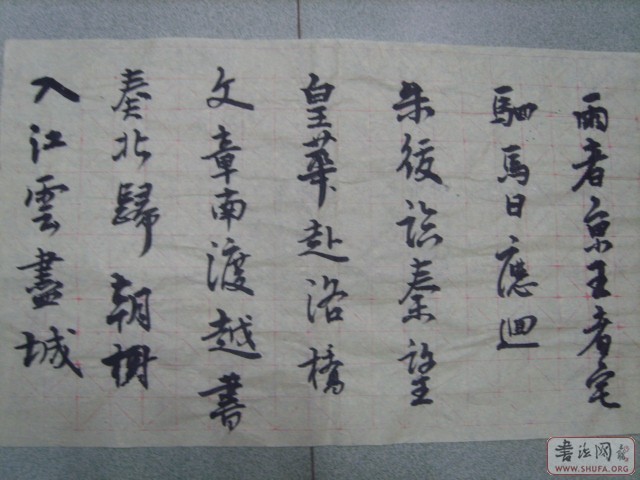 雨者京王者宅
駟馬日應迴
朱後論秦望
皇華赴洛橋
文章南渡越書
奏北歸朝樹
入江雲盡城
書法网
WWW.SHUFA.ORG